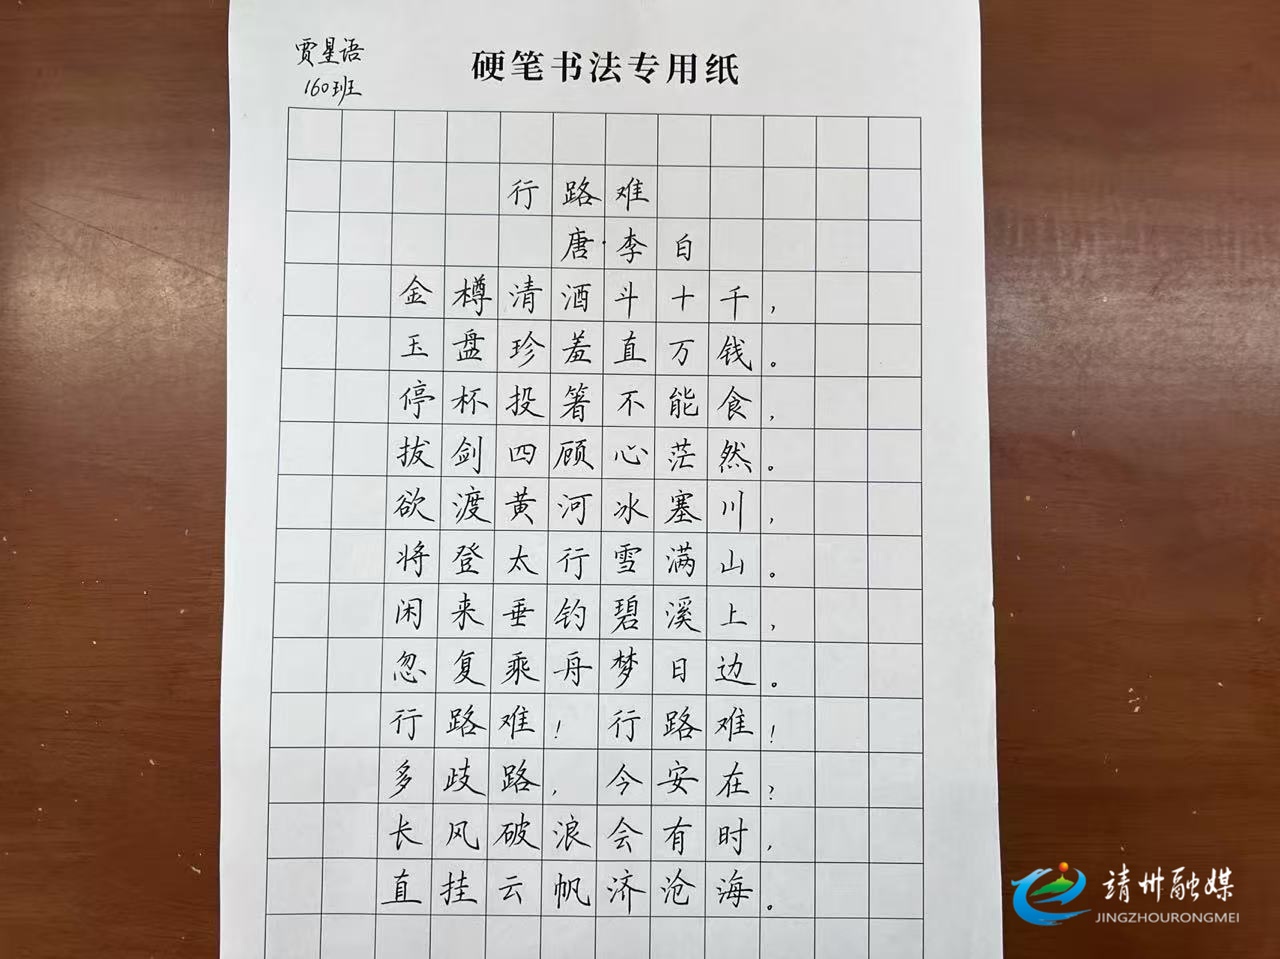 贾星语
160班
硬笔书法专用纸
行路难
唐·李白
金樽清酒斗十千，
玉盘珍羞直万钱。
停杯投箸不能食，
拔剑四顾心茫然。
欲渡黄河冰塞川，
将登太行雪满山。
闲来垂钓碧溪上，
忽复乘舟梦日边。
行路难！行路难！
多歧路，今安在？
长风破浪会有时，
直挂云帆济沧海。
靖州融媒
JINGZHOURONGMEI